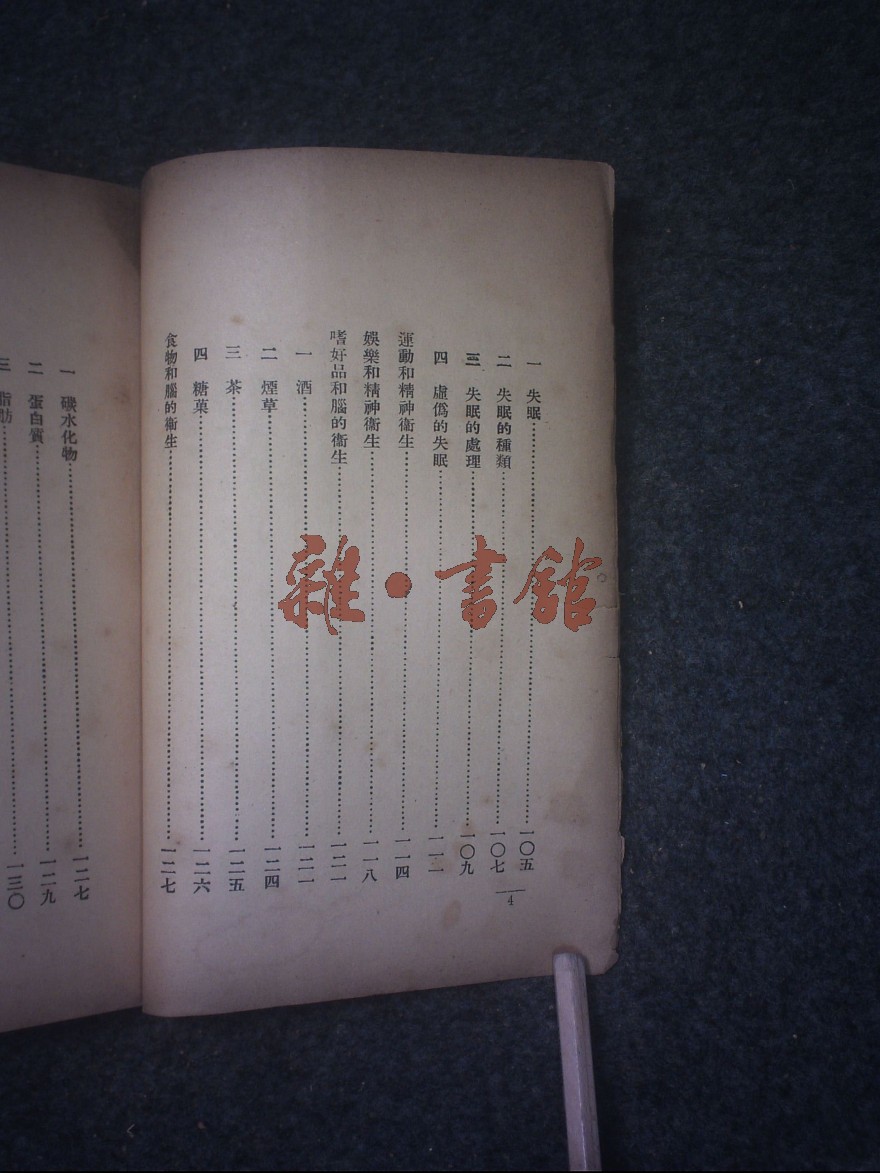 一　失眠……一〇五
二　失眠的種類……一〇七
三　失眠的處理……一〇九
四　虛僞的失眠……一一一
運動和精神衞生……一一四
娛樂和精神衞生……一一八
嗜好品和腦的衞生……一二一
一　酒……一二一
二　煙草……一二四
三　茶……一二五
四　糖菓……一二六
食物和腦的衞生……一二七
4
一　碳水化物……一二七
二　蛋白質……一二九
三　脂肪……一三〇
雜·書館